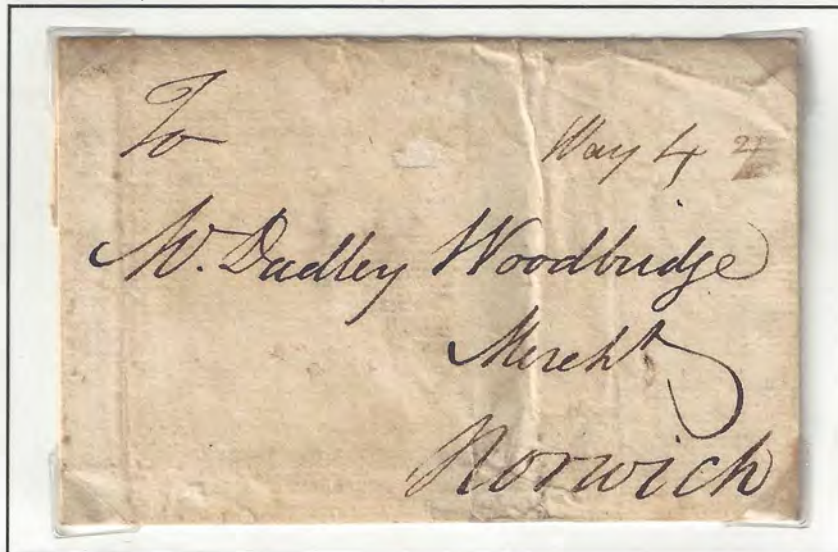 To
Way 4
Mr. Dudley Woodbridge
Mercht
Norwich